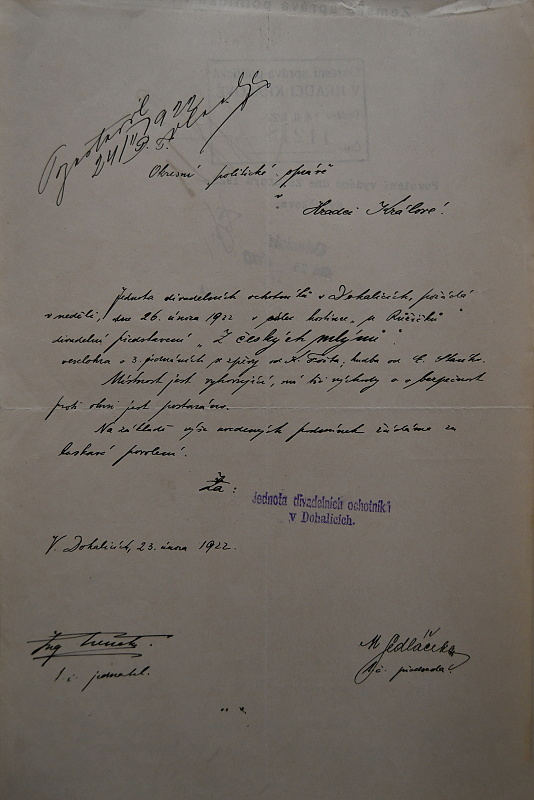 24/II 1922
Okresní politické správě
v
Hradci Králové!
Jednota divadelních ochotníků v Dohalicích, pořádá
v neděli, dne 26. února 1922 v sále hostince „u Růžičků"
divadelní představení „Z českých mlýnů".
veselohra o 3. jednáních se zpěvy od K. Fořta, hudba od
Místnost jest vyhovující, má tři východy a o bezpečnost
proti ohni jest postaráno.
Na základě výše uvedených podmínek žádáme za
laskavé povolení.
Za:
Jednota divadelních ochotníků
v Dohalicích.
V Dohalicích, 23. února 1922.
Ing
M Sedláček
t. č. jednatel.
t. č. předseda.